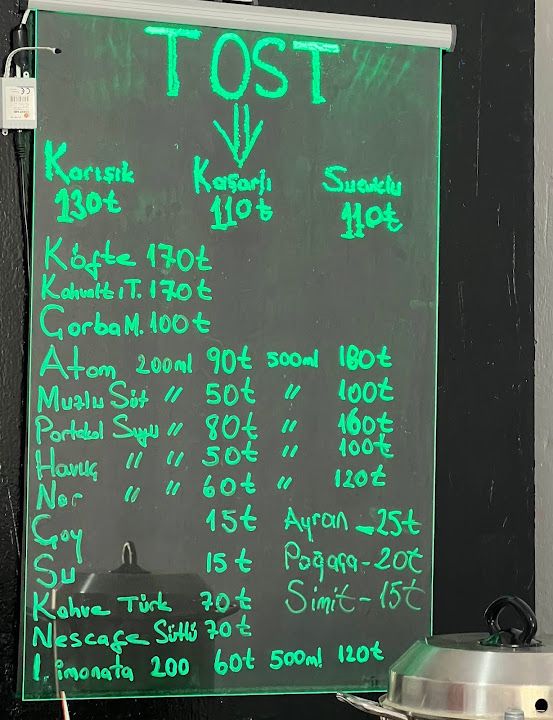 TOST
Karışık Kaşarlı Sucuklu
130₺ 110₺ 110₺
Köfte 170₺
Kahvaltı T. 170₺
Çorba M. 100₺
Atom 200ml 90₺ 500ml 180₺
Muzlu Süt " 50₺ " 100₺
Portakal Suyu " 80₺ " 160₺
Havuç " " 50₺ " 100₺
Nar " " 60₺ " 120₺
Çay 15₺ Ayran - 25₺
Su 15₺ Poğaça - 20₺
Kahve Türk 70₺ Simit - 15₺
Nescafe Sütlü 70₺
Limonata 200 60₺ 500ml 120₺